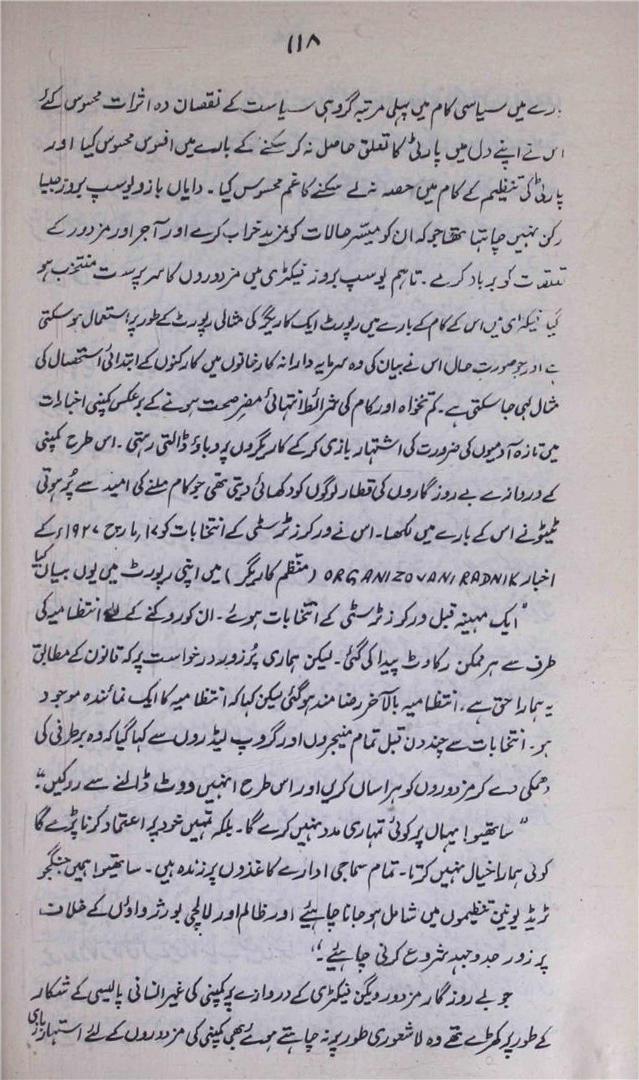 ۱۱۸
بارے میں سیاسی کام میں پہلی مرتبہ گروہی سیاست کے نقصان دہ اثرات محسوس کئے
اس نے اپنے دل میں پارٹی کا تعلق حاصل نہ کر سکنے کے بارے میں افسوس محسوس کیا اور
پارٹی کی تنظیم کے کام میں حصہ نہ لے سکنے کا غم محسوس کیا ۔ دایاں بازو یوسپ بروز جیسا
رکن نہیں چاہتا تھا جو کہ ان کو میسر حالات کو مزید خراب کرے اور آجر اور مزدور کے
تعلقات کو برباد کرے ۔ تاہم یوسپ بروز فیکٹری میں مزدوروں کا سرپرست منتخب ہو
گیا فیکٹری میں اس کے کام کے بارے میں رپورٹ ایک کاریگر کی مثالی رپورٹ کے طور پر استعمال ہو سکتی
ہے اور جو صورت حال اس نے بیان کی وہ سرمایہ دارانہ کارخانوں میں کارکنوں کے ابتدائی استحصال کی
مثال کہی جا سکتی ہے ۔ کم تنخواہ اور کام کی شرائط انتہائی مضر صحت ہونے کے برعکس کمپنی اخبارات
میں تازہ آدمیوں کی ضرورت کی اشتہار بازی کر کے کاریگروں پر دباؤ ڈالتی رہتی ۔ اس طرح کمپنی
کے دروازے بے روزگاروں کی قطار لوگوں کو دکھائی دیتی تھی جو کام ملنے کی امید سے پُر ہوتی
ٹیٹو نے اس کے بارے میں لکھا ۔ اس نے ورکرز ٹرسٹی کے انتخابات کو ۱۷؍ مارچ ۱۹۲۷ء کے
اخبار ORGANIZOVANI RADNIK (منظم کاریگر) میں اپنی رپورٹ میں یوں بیان کیا
"ایک مہینہ قبل ورکرز ٹرسٹی کے انتخابات ہوئے ۔ ان کو روکنے کے لئے انتظامیہ کی
طرف سے ہر ممکن رکاوٹ پیدا کی گئی ۔ لیکن ہماری پُر زور درخواست پر کہ قانون کے مطابق
یہ ہمارا حق ہے ، انتظامیہ بالآخر رضا مند ہو گئی لیکن کہا کہ انتظامیہ کا ایک نمائندہ موجود
ہو ۔ انتخابات سے چند دن قبل تمام منیجروں اور گروپ لیڈروں سے کہا گیا کہ وہ برطرفی کی
دھمکی دے کر مزدوروں کو ہراساں کریں اور اس طرح انہیں ووٹ ڈالنے سے روکیں ۔"
"ساتھیو! یہاں پر کوئی تمہاری مدد نہیں کرے گا ۔ بلکہ تمہیں خود پر اعتماد کرنا پڑے گا
کوئی ہمارا خیال نہیں کرتا ۔ تمام سماجی ادارے کاغذوں پر زندہ ہیں ۔ ساتھیو! ہمیں جنگجو
ٹریڈ یونین تنظیموں میں شامل ہو جانا چاہیئے اور ظالم اور لالچی بورژواؤں کے خلاف
پر زور جدوجہد شروع کرنی چاہیئے ۔"
جو بے روزگار مزدور ویگن فیکٹری کے دروازے پر کمپنی کی غیر انسانی پالیسی کے شکار
کے طور پر کھڑے تھے وہ لاشعوری طور پر نہ چاہتے ہوئے بھی کمپنی کی مزدوروں کے لئے اشتہار بازی